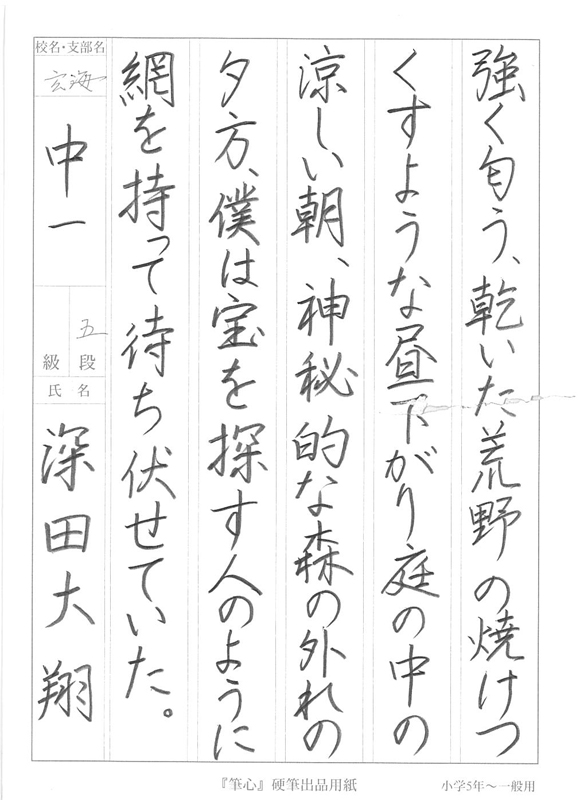 強く匂う、乾いた荒野の焼けつ
くすような昼下がり庭の中の
涼しい朝、神秘的な森の外れの
夕方、僕は宝を探す人のように
網を持って待ち伏せていた。
校名・支部名
玄海
中一
五
段
級
氏名
深田大翔
『筆心』硬筆出品用紙
小学5年〜一般用